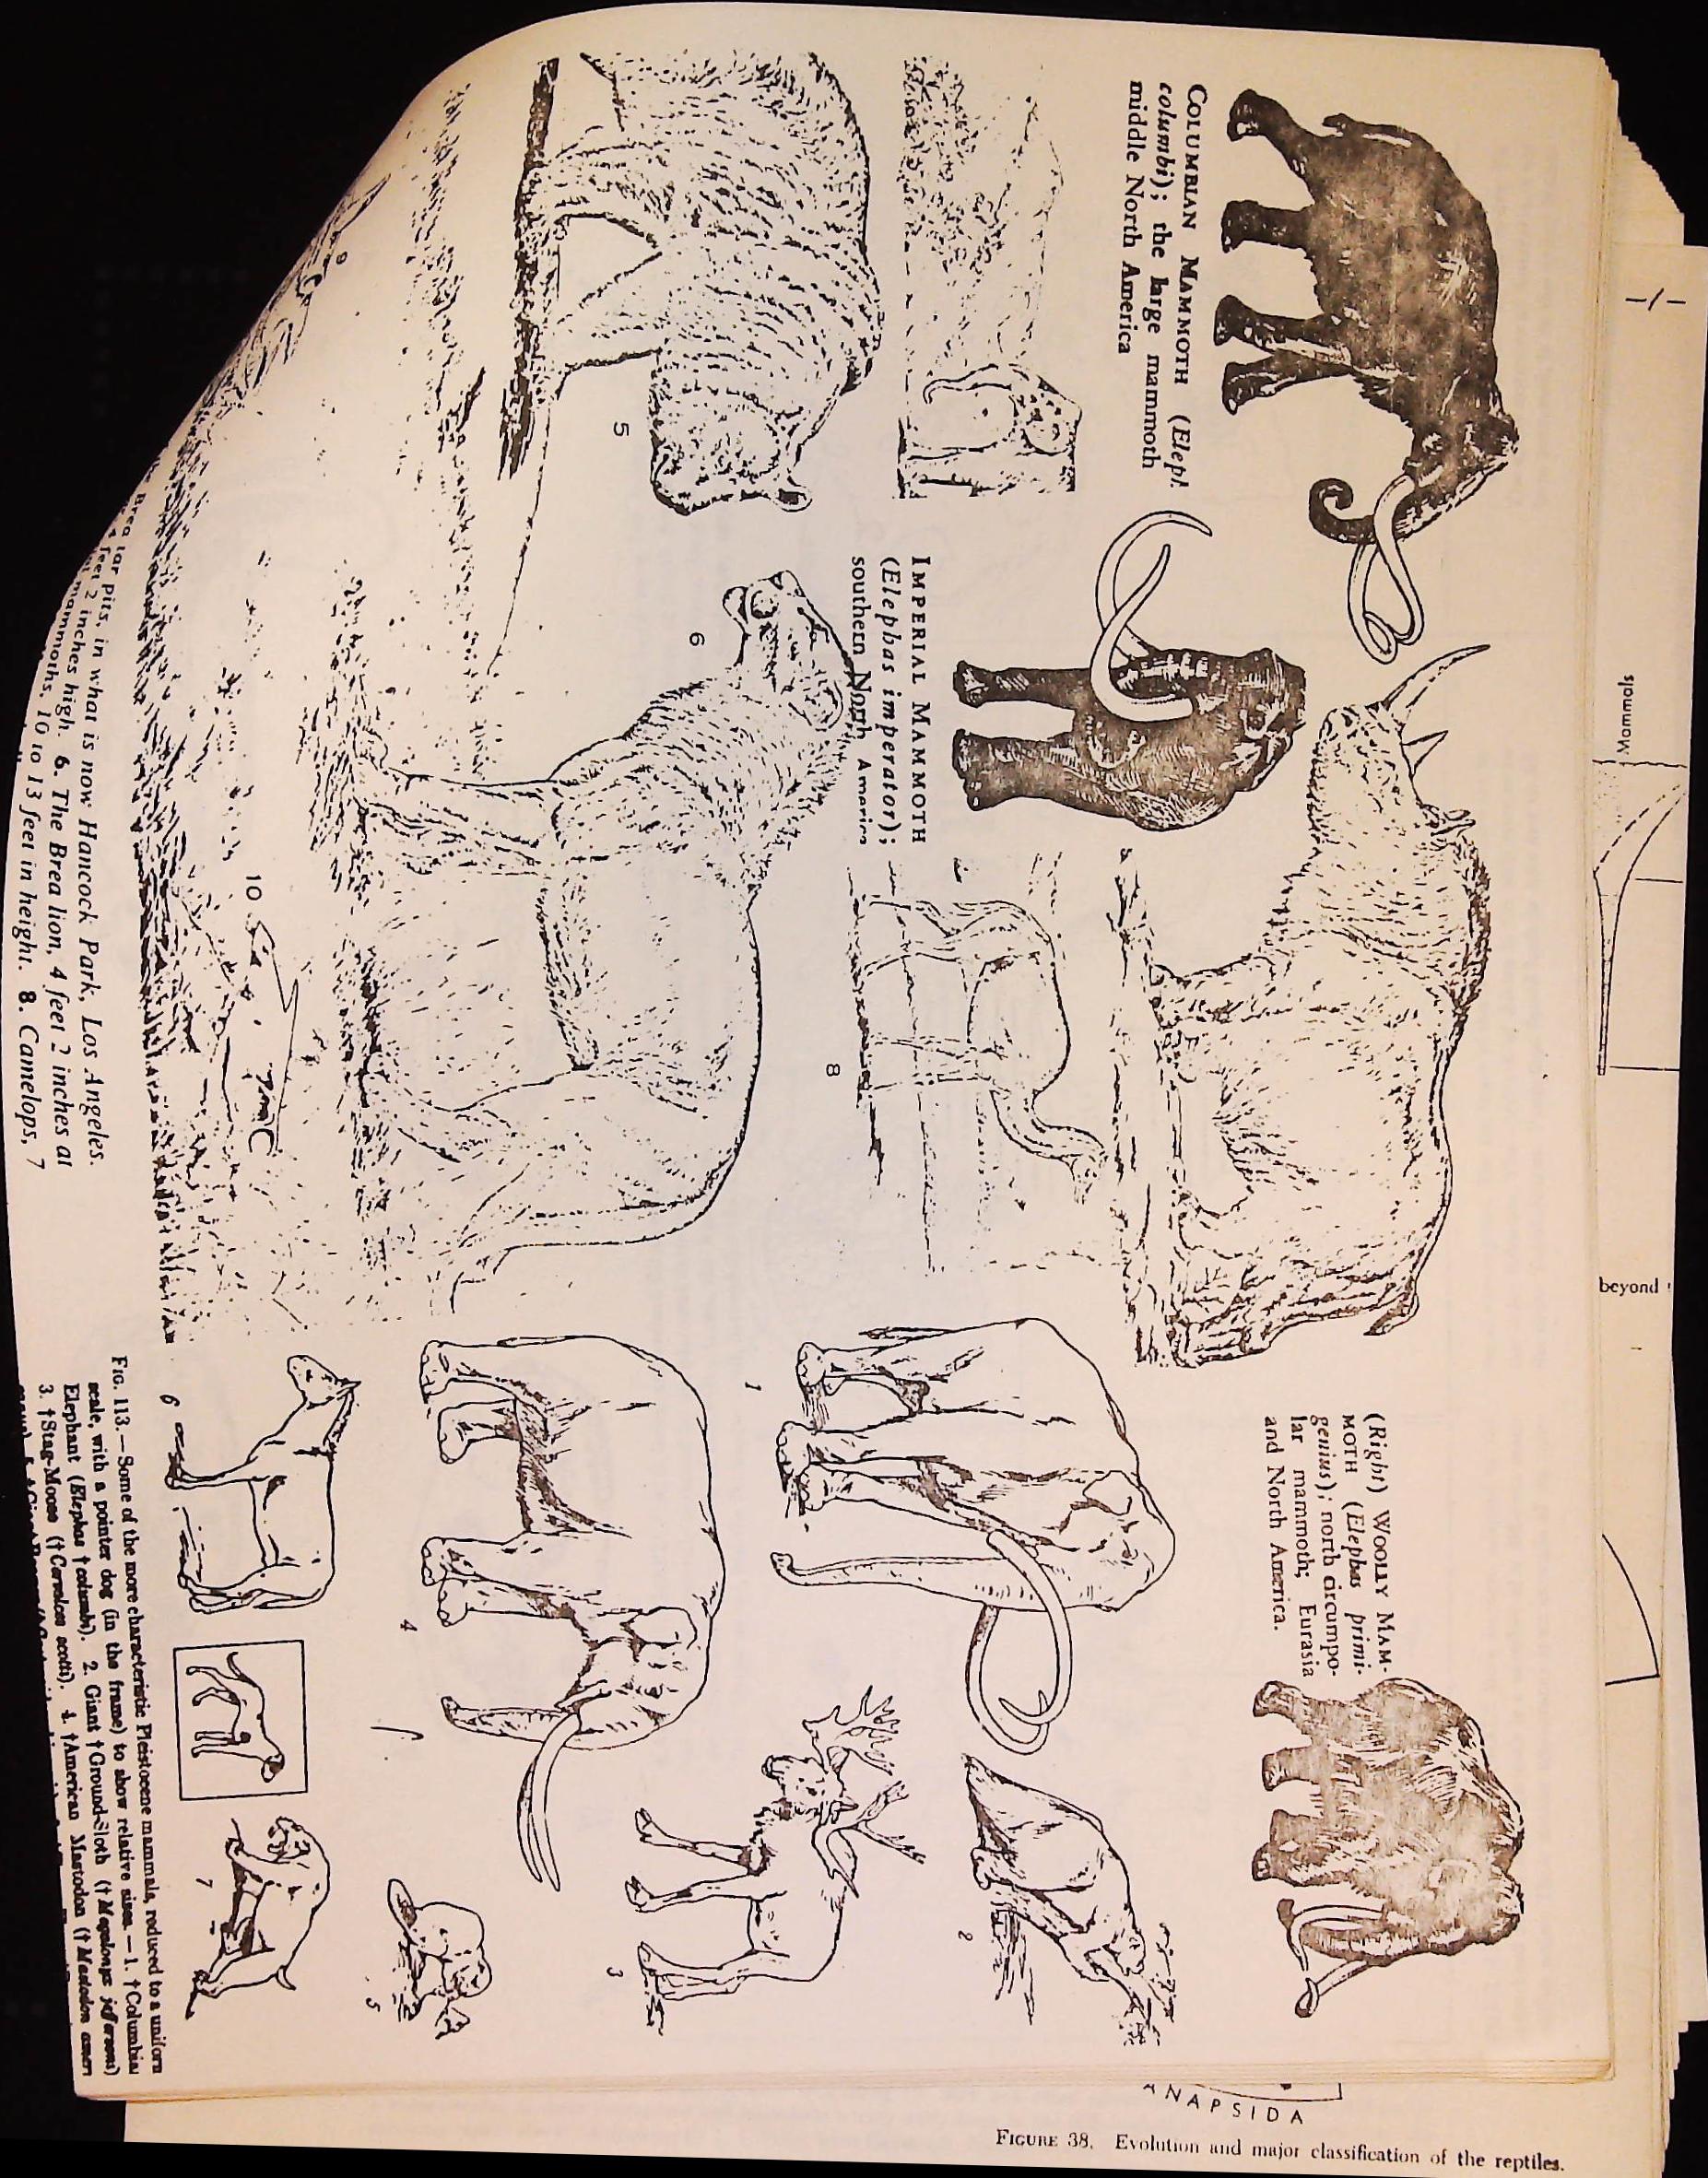 COLUMBIAN MAMMOTH (Eleph
columbi); the large mammoth
middle North America
IMPERIAL MAMMOTH
(Elephas imperator);
southern North America
(Right) WOOLLY MAM-
MOTH (Elephas primi-
genius); north circumpo-
lar mammoth; Eurasia
and North America.
5
6
8
9
10
Brea tar pits, in what is now Hancock Park, Los Angeles.
feet 2 inches high. 6. The Brea lion, 4 feet 2 inches at
mammoths, 10 to 13 feet in height. 8. Camelops, 7
1
2
3
4
5
6
7
FIG. 113.—Some of the more characteristic Pleistocene mammals, reduced to a uniform
scale, with a pointer dog (in the frame) to show relative sizes.—1. †Columbian
Elephant (Elephas †columbi). 2. Giant †Ground-Sloth (†Megalonyx jeffersoni)
3. †Stag-Moose (†Cervalces scotti). 4. †American Mastodon (†Mastodon ameri
-/-
Mammals
beyond
ANAPSIDA
FIGURE 38. Evolution and major classification of the reptiles.